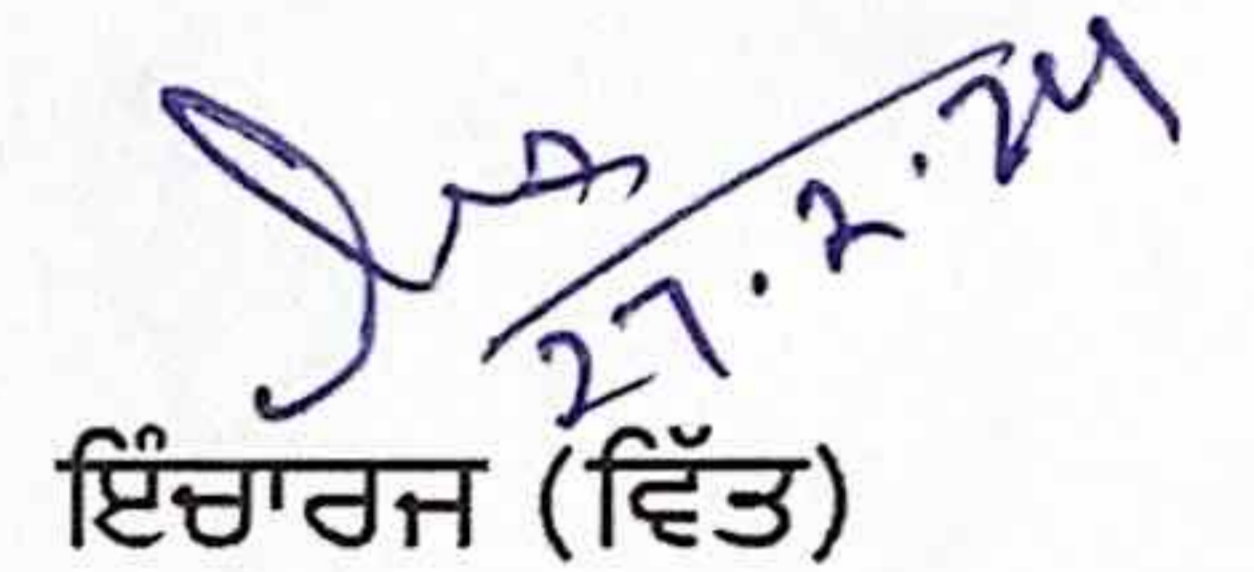 27.2.24
ਇੰਚਾਰਜ (ਵਿੱਤ)